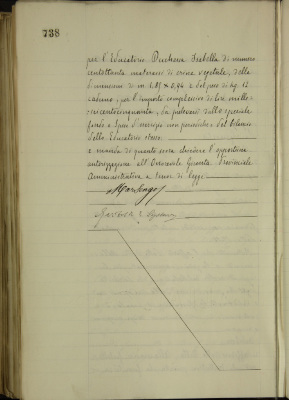 738
per l'Educatorio Duchessa Isabella di numero
centottanta materassi di crine vegetale, delle
dimensioni di m 1,85 × 0,94 e del peso di Kg. 12
caduno, per l'importo complessivo di lire mille
seicentocinquanta, da prelevarsi dallo speciale
fondo " Spese d'arredo " del bilancio
dello Educatorio stesso.
e manda di quanto sovra chiedere l'opportuna
autorizzazione all'Onorevole Giunta Provinciale
Amministrativa a senso di legge.